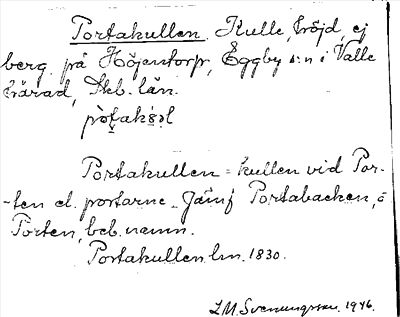 Portakullen. Kulle, höjd, ej
berg på Höjentorp, Eggby s:n i Valle
härad, Skb. län.
Portakullen = kullen vid Por-
-ten el. portarne. Jämf Portabacken, o
Porten, beb. namn.
Portakullen lm. 1830.
L.M. Svenungsson. 1946.